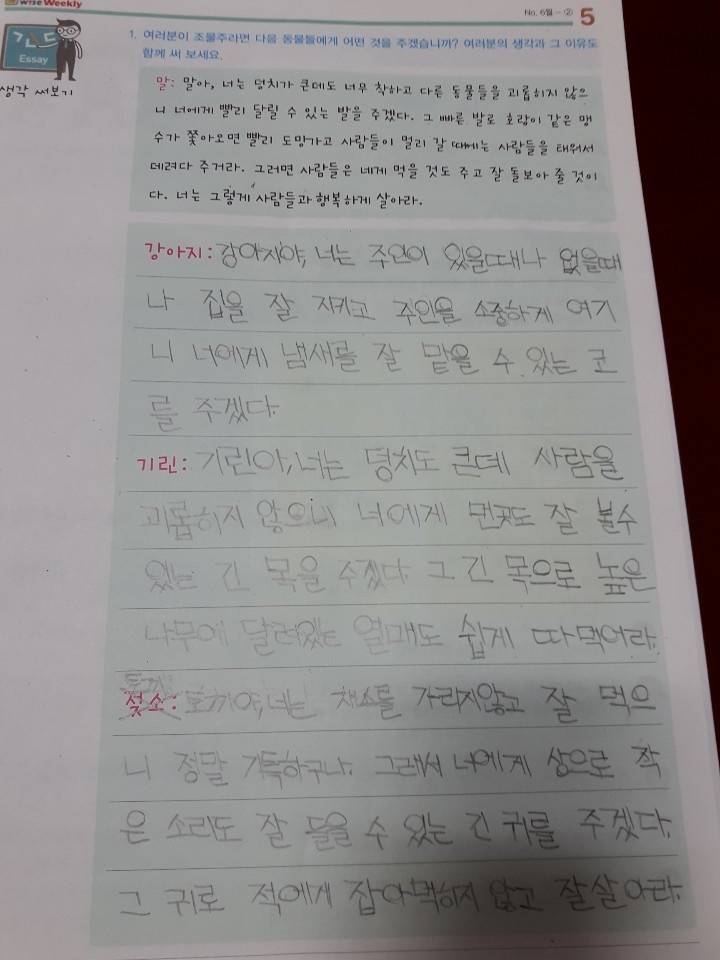 wise Weekly
No. 6월-② 5
Essay
생각 써보기
1. 여러분이 조물주라면 다음 동물들에게 어떤 것을 주겠습니까? 여러분의 생각과 그 이유도
함께 써 보세요.
말: 말아, 너는 덩치가 큰데도 너무 착하고 다른 동물들을 괴롭히지 않으
니 너에게 빨리 달릴 수 있는 발을 주겠다. 그 빠른 발로 호랑이 같은 맹
수가 쫓아오면 빨리 도망가고 사람들이 멀리 갈 때에는 사람들을 태워서
데려다 주거라. 그러면 사람들은 네게 먹을 것도 주고 잘 돌보아 줄 것이
다. 너는 그렇게 사람들과 행복하게 살아라.
강아지: 강아지야, 너는 주인이 있을때나 없을때
나 집을 잘 지키고 주인을 소중하게 여기
니 너에게 냄새를 잘 맡을 수 있는 코
를 주겠다.
기린: 기린아, 너는 덩치도 큰데 사람을
괴롭히지 않으니 너에게 먼곳도 잘 볼수
있는 긴 목을 주겠다. 그 긴 목으로 높은
나무에 달려있는 열매도 쉽게 따먹어라.
토끼:
젖소: 토끼야, 너는 채소를 가리지않고 잘 먹으
니 정말 기특하구나. 그래서 너에게 상으로 작
은 소리도 잘 들을 수 있는 긴 귀를 주겠다.
그 귀로 적에게 잡아먹히지 않고 잘살아라.